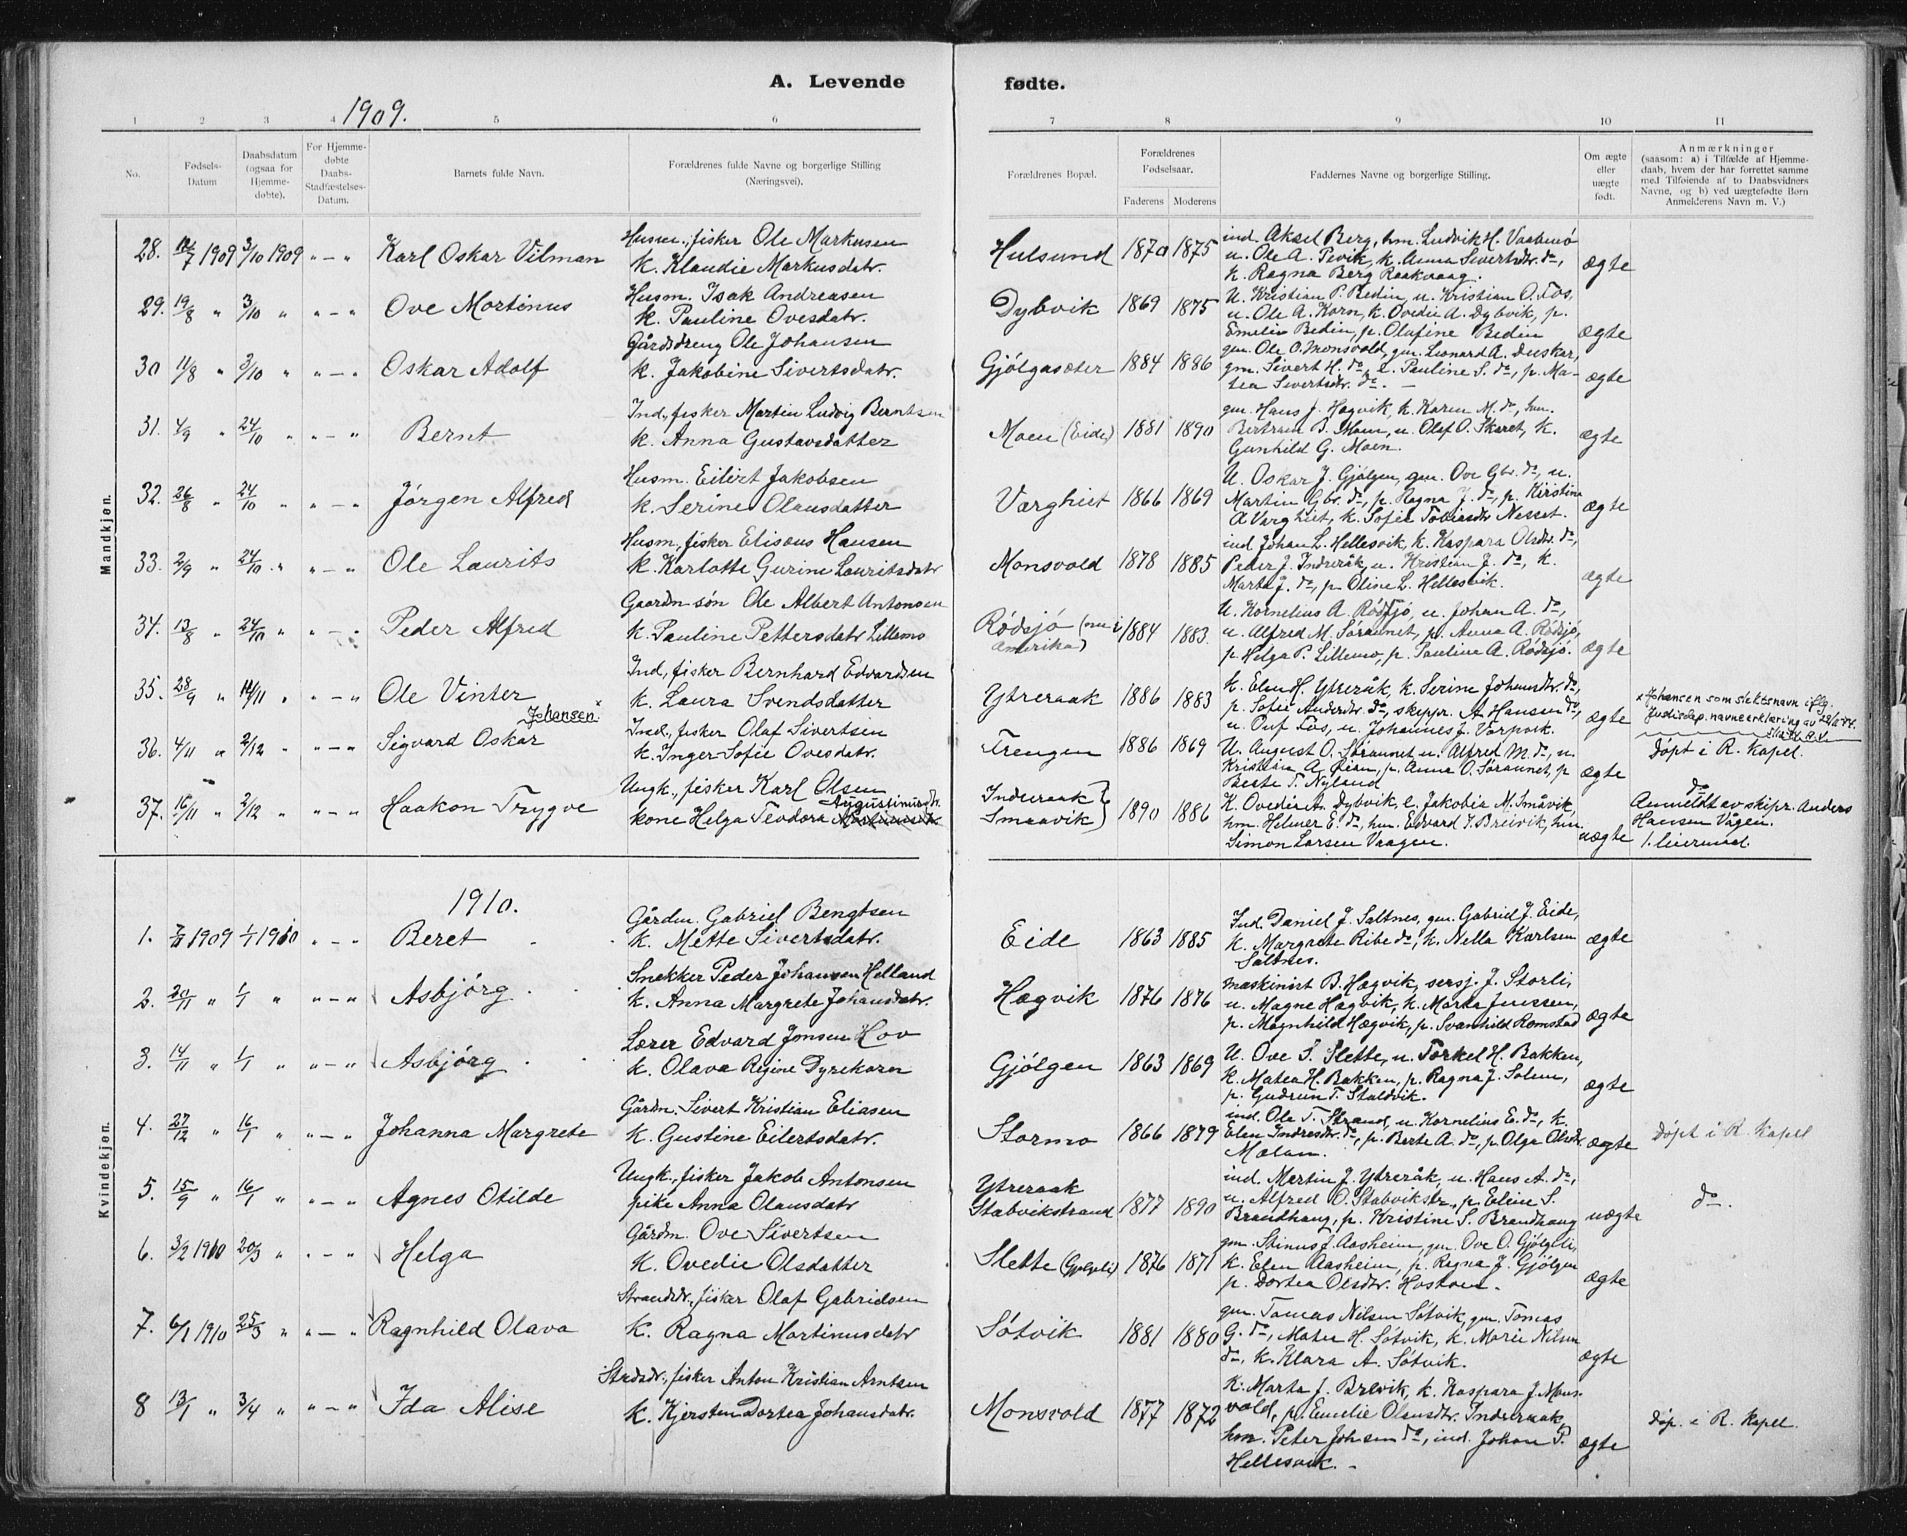 A. Levende fødte.
1909.
1 2 3 4 5 6 7 8 9 10 11
No.
Fødsels-Datum
Daabsdatum (ogsaa for Hjemmedøbte).
For Hjemmedøbte Daabs-Stadfæstelses-Datum.
Barnets fulde Navn.
Forældrenes fulde Navne og borgerlige Stilling (Næringsvei).
Forældrenes Bopæl.
Forældrenes Fødselsaar.
Faderens Moderens
Faddernes Navne og borgerlige Stilling.
Om ægte eller uægte født.
Anmærkninger
(saasom: a) i Tilfælde af Hjemmedaab, hvem der har forrettet samme med Tilføiende af to Daabsvidners Navne, og b) ved uægtefødte Børn Anmelderens Navn m. V.)
Mandkjøn.
28. 1909 3/10 1909 " — " Karl Oskar Vilman
Husm., fisker Ole Markusen
k. Klaudie Markusdatr.
Hulsund 1870 1875
ind. Aksel Berg, hm. Ludvik H. Vaabenø
u. Ole A. Pevik, k. Anna Sivertsdtr. do,
k. Ragna Berg Raakvaag.
ægte
29. 19/8 " 3/10 " " — " Ove Mortinus
Husm. Isak Andreasen
k. Pauline Ovesdatr.
Dybvik 1869 1875
U. Kristian P. Bedin, u. Kristian O. Fos,
u. Ole A. Korn, k. Ovedie A. Dybvik, p.
Emelie Bedin, p. Olufine Bedin
ægte
30 11/8 " 3/10 " " — " Oskar Adolf
Gårdsdreng Ole Johansen
k. Jakobine Sivertsdatr.
Gjølgasæter 1884 1886
gm. Ole O. Monsvold, gm. Leonard A. Duskar,
gm. Sivert H. do, e. Pauline S. do, p. Ma-
tea Sivertsdtr. do. —
ægte
31. 4/9 " 24/10 " " — " Bernt
Ind., fisker Martin Ludvig Berntsen
k. Anna Gustavsdatter
Moen (Eide) 1881 1890
gm. Hans J. Hægvik, k. Karen M. do, hm.
Bertram B. Moen, u. Olaf O. Skaret, k.
Gunhild G. Moen.
ægte
32. 26/8 " 24/10 " — " Jørgen Alfred
Husm. Eilert Jakobsen
k. Serine Olausdatter
Varghiet 1866 1869
U. Oskar J. Gjølgen, gm. Ove Gbr. do, u.
Martin Gbr. do, p. Ragna J. do, p. Kirstine
A Varghiet, k. Sofie Tobiasdtr Nesset.
ægte
33. 2/9 " 24/10 " " — " Ole Laurits
Husm., fisker Elisæus Hansen
k. Karlotte Gurine Lauritsdatr
Monsvold 1878 1885
ind Johan L. Hellesvik, k. Kaspara Olsdtr. do,
Peder J. Inderåk, u. Kristian J. do, k.
Marta J. do, p. Oline L. Hellesvik.
ægte
34. 13/8 " 24/10 " " — " Peder Alfred
Gaardm søn Ole Albert Antonsen
k. Pauline Pettersdatr Lillemo
Rødsjø (nu i Amerika) 1884 1883.
U. Kornelius A. Rødsjø, u. Johan A. do,
u. Alfred M. Søraunet, p. Anna A. Rødsjø,
p. Helga P. Lillemo, p. Paulina A. Rødsjø.
ægte
35. 28/9 " 14/11 " " — " Ole Vinter
Ind, fisker Bernhard Edvardsen
k. Laura Svendsdatter
Ytreraak 1886 1883
k. Elen H. Ytreråk, k. Serine Johansdtr. do,
p. Sofie Andersdtr. do, skippr. A. Hansen do,
u. Ouf Fos, u. Johannes J. Varpvik.
ægte
Johansen x
x Johansen som slektsnavn iflg.
Justisdep. navneerklæring av
36. 4/11 " 2/12 " " — " Sigvard Oskar
Ind., fisker Olaf Sivertsen
k. Inger Sofie Ovesdatr.
Trengen 1886 1869
U. August O. Søraunet u. Alfred M. do, u.
Kristian A. Øian, p. Anna O. Søraunet, p
Berte T. Nyland
ægte
døpt i R. Kapel.
37. 16/11 " 2/12 " " — " Haakon Trygve
Ungk., fisker Karl Olsen
Augustinusdtr.
kone Helga Teodora
Inderaak
Smaavik } 1890 1886
K. Ovedie A. Dybvik, e. Jakobia M. Småvik,
hm. Helmer E. do, hm. Edvard J. Breivik, hm.
Simon Larsen Vaagen.
uægte
do
Anmeldt av skipr. Anders
Hansen Vågen.
1. leiermaal.
1910.
Kvindekjøn.
1. 1909 1/1 1910 " — " Beret
Gårdm. Gabriel Bengtsen
k. Mette Sivertsdatr.
Eide 1863 1885
Ind. Daniel J. Saltnes, gm. Gabriel J. Eide,
k. Margrete Ribe do, k. Nella Karlsen
Saltnes.
ægte
2. 20/11 " 1/1 " " — " Asbjørg
Snekker Peder Johansen Helland
k. Anna Margrete Johansdatr.
Hægvik 1876 1876
maskinist B. Hægvik, sersj. J. Storli,
u. Magne Hægvik, k. Marta Jenssen,
p. Magnhild Hægvik, p. Svanhild Romstad
ægte
3. 14/11 " 1/1 " " — " Asbjørg
Lærer Edvard Jonsen Hov
k. Olava Regine Dyrekaren
Gjølgen 1863 1869
U. Ove S. Slette, u. Torkel H. Bakken,
k. Matea H. Bakken, p. Ragna J. Solem,
p. Gudrun T. Staldvik.
ægte
4. 27/12 " 16/1 " " — " Johanna Margrete
Gårdm. Sivert Kristian Eliasen
k. Gustine Eilertsdatr.
Stormo 1866 1879
ind. Ole T. Strand, u. Kornelius E. do, k.
Elen Indresdtr. do, p. Berte A. do, p. Olga Olsdtr
Mælan.
ægte
døpt i R. Kapel
5. 15/9 " 16/1 " " — " Agnes Otilde
Ungk., fisker Jakob Antonsen
pike Anna Olausdatr
Ytreraak
Stabvikstrand 1877 1890
ind. Martin J. Ytreråk, u. Hans A. do,
u. Alfred O. Stabvikstr., p. Eline S.
Brandhaug, p. Kristine S. Brandhaug
uægte
do.
6. 3/2 1910 20/3 " " — " Helga
Gårdm. Ove Sivertsen
k. Ovedie Olsdatter
Slette (Gjølgli) 1876 1871
gm. Stinus J. Aasheim, gm. Ove O. Gjølgli,
k. Elen Aasheim, p. Ragna J. Gjølgen
p. Dortea Olsdtr. Hostoen. —
ægte
7. 6/1 1910 25/3 " " — " Ragnhild Olava
Strandsdr., fisker Olaf Gabrielsen
k. Ragna Martinusdatr
Søtvik 1881 1880
gm. Tomas Nilsen Søtvik, gm. Tomas
G. do, Matea H. Søtvik, k. Marie Nilsen
do, k. Klara A. Søtvik.
ægte
8 13/1 " 3/4 " " — " Ida Alise
Strdsdr., fisker Anton Kristian Arntsen
k. Kjersten Dortea Johansdatr.
Monsvold 1877 1872
K. Marta J. Brevik, k. Kaspara J. Mons-
vold, p. Emelie Olausdtr. Inderaak,
hm. Peter Johsen do, ind. Johan P.
Hellesvik. —
ægte
døp. i R. Kapel.